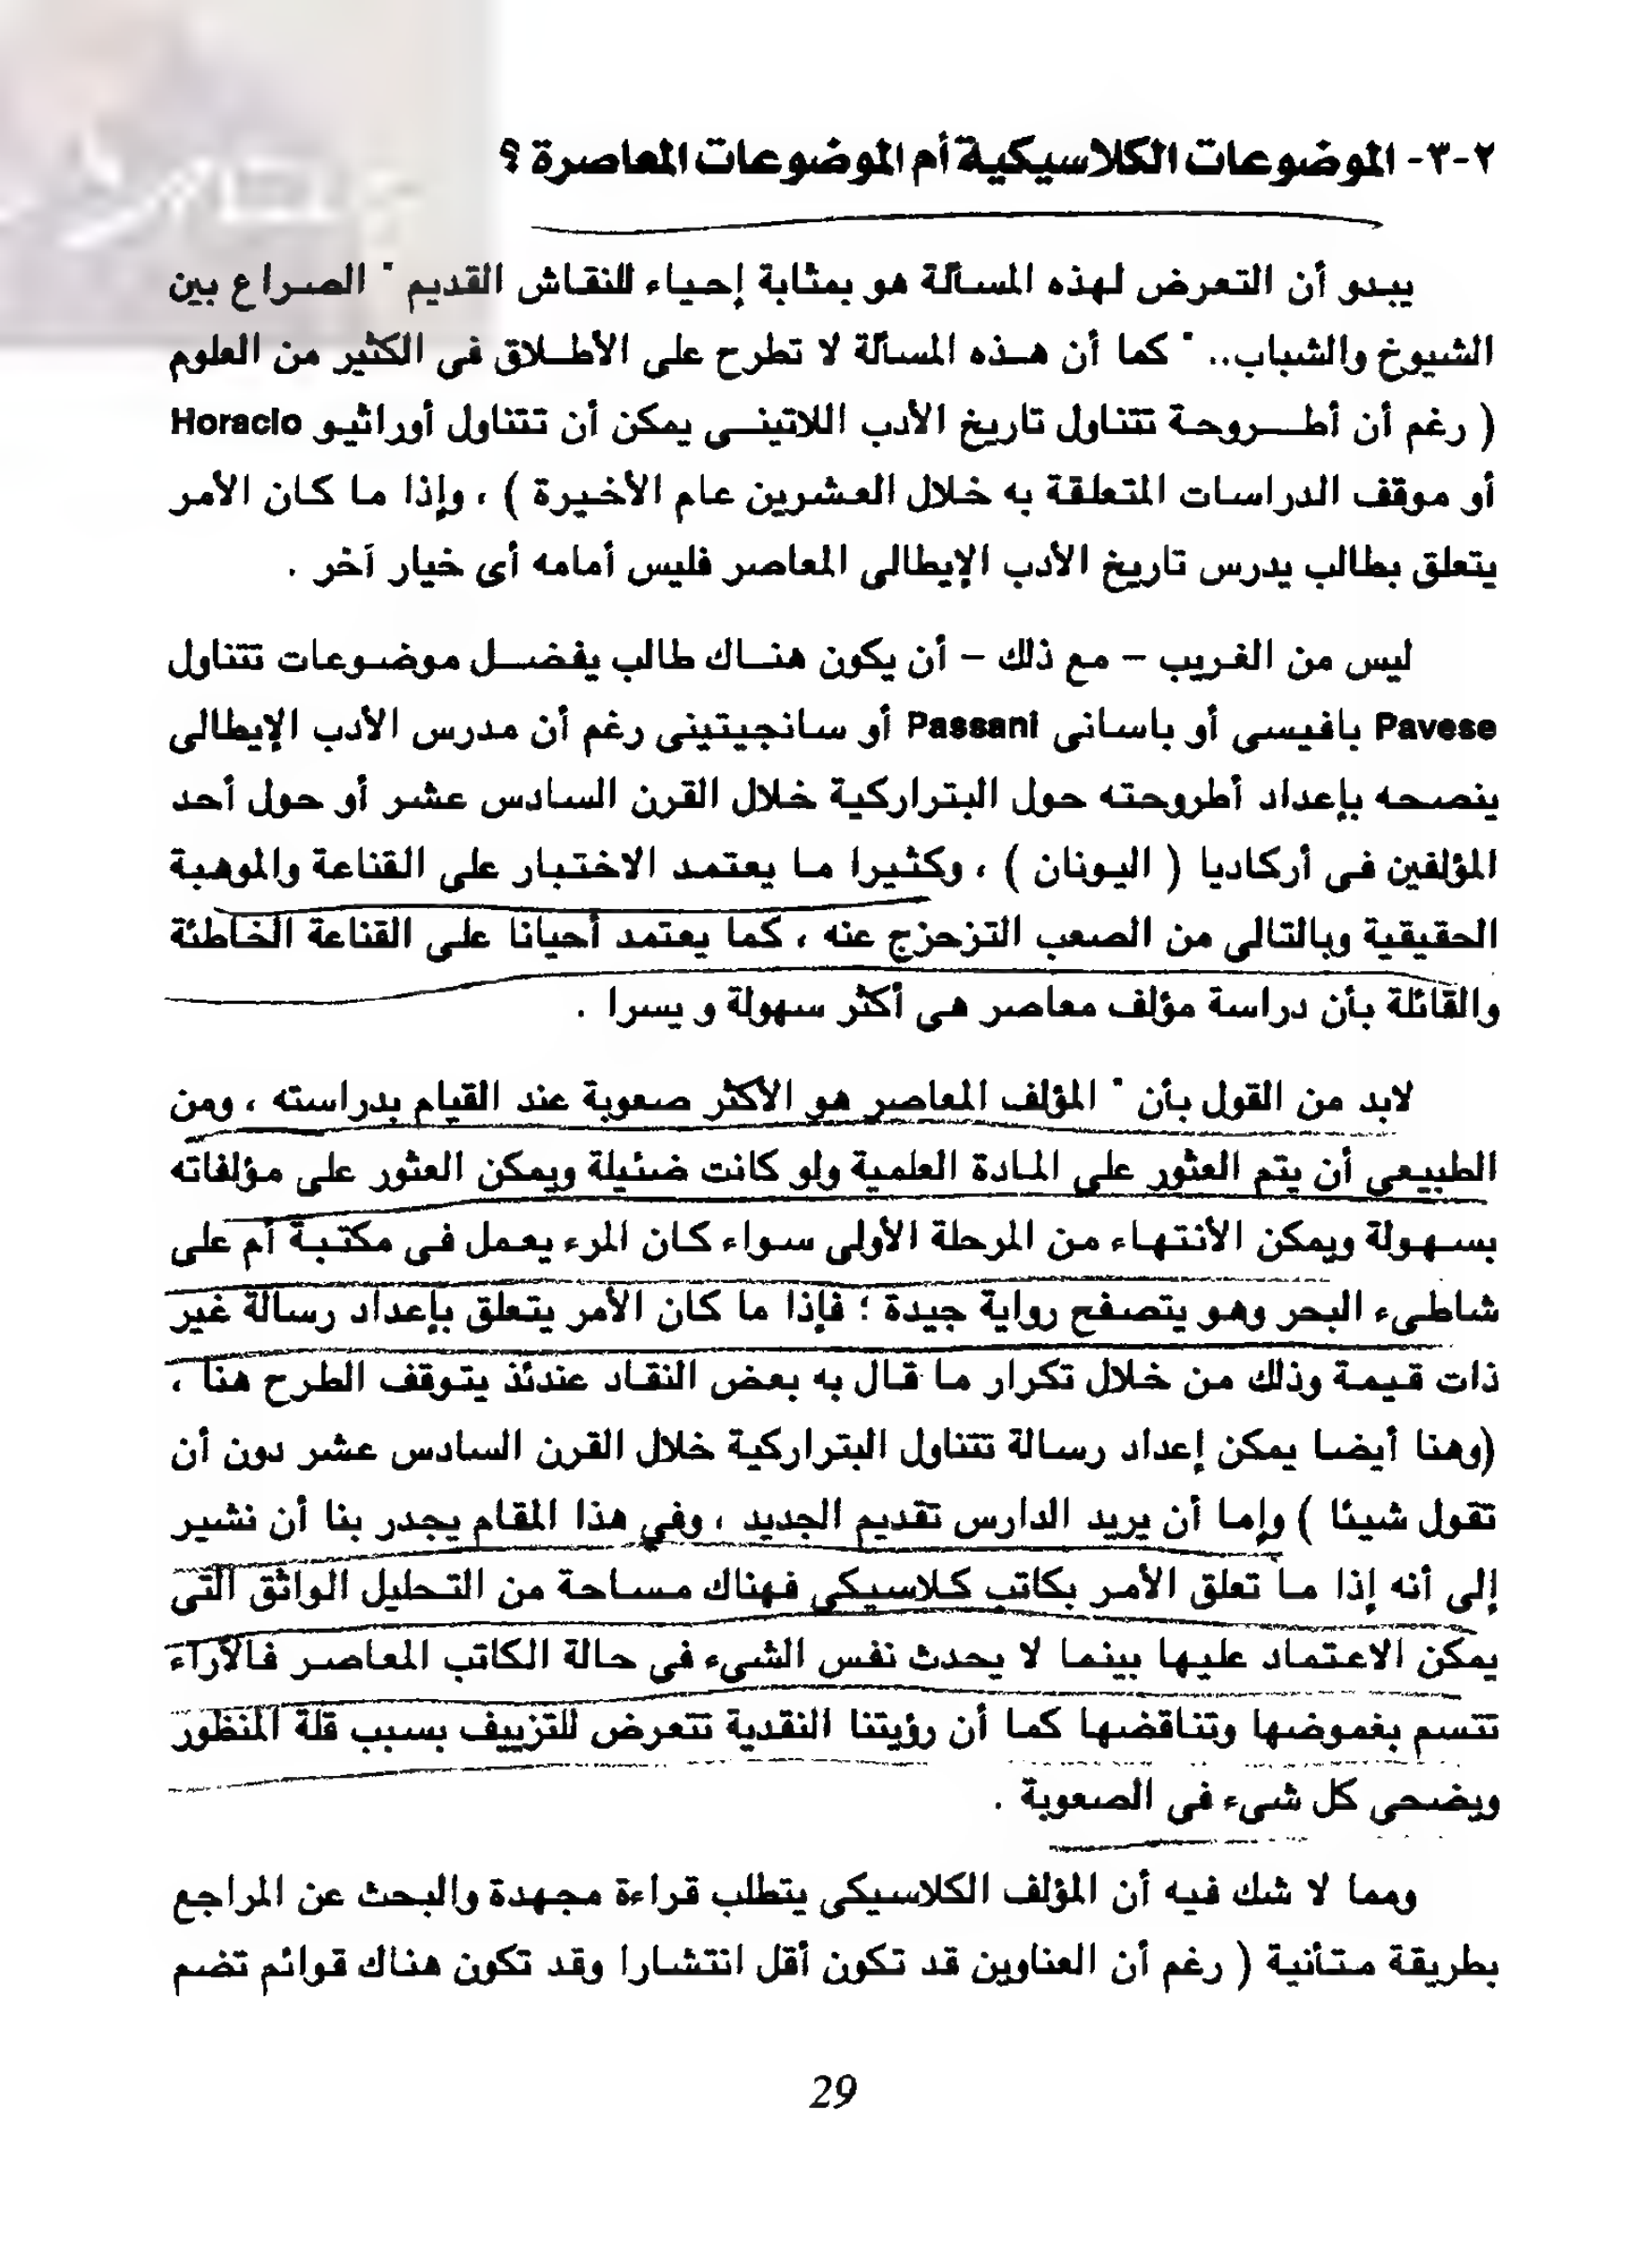 ٢-٣- الموضوعات الكلاسيكية أم الموضوعات المعاصرة ؟
يبدو أن التعرض لهذه المسألة هو بمثابة إحياء للنقاش القديم " الصراع بين
الشيوخ والشباب.. " كما أن هذه المسألة لا تطرح على الأطلاق فى الكثير من العلوم
( رغم أن أطروحة تتناول تاريخ الأدب اللاتينى يمكن أن تتناول أوراثيو Horacio
أو موقف الدراسات المتعلقة به خلال العشرين عام الأخيرة ) ، وإذا ما كان الأمر
يتعلق بطالب يدرس تاريخ الأدب الإيطالى المعاصر فليس أمامه أى خيار آخر .
ليس من الغريب – مع ذلك – أن يكون هناك طالب يفضل موضوعات تتناول
Pavese بافيسى أو باسانى Passani أو سانجيتينى رغم أن مدرس الأدب الإيطالى
ينصحه بإعداد أطروحته حول البتراركية خلال القرن السادس عشر أو حول أحد
المؤلفين فى أركاديا ( اليونان ) ، وكثيرا ما يعتمد الاختبار على القناعة والموهبة
الحقيقية وبالتالى من الصعب التزحزج عنه ، كما يعتمد أحيانا على القناعة الخاطئة
والقائلة بأن دراسة مؤلف معاصر هى أكثر سهولة و يسرا .
لابد من القول بأن " المؤلف المعاصر هو الأكثر صعوبة عند القيام بدراسته ، ومن
الطبيعى أن يتم العثور على المادة العلمية ولو كانت ضئيلة ويمكن العثور على مؤلفاته
بسهولة ويمكن الأنتهاء من المرحلة الأولى سواء كان المرء يعمل فى مكتبة أم على
شاطىء البحر وهو يتصفح رواية جيدة ؛ فإذا ما كان الأمر يتعلق بإعداد رسالة غير
ذات قيمة وذلك من خلال تكرار ما قال به بعض النقاد عندئذ يتوقف الطرح هنا ،
(وهنا أيضا يمكن إعداد رسالة تتناول البتراركية خلال القرن السادس عشر دون أن
تقول شيئا ) وإما أن يريد الدارس تقديم الجديد ، وفي هذا المقام يجدر بنا أن نشير
إلى أنه إذا ما تعلق الأمر بكاتب كلاسيكى فهناك مساحة من التحليل الواثق التى
يمكن الاعتماد عليها بينما لا يحدث نفس الشىء فى حالة الكاتب المعاصر فالآراء
تتسم بغموضها وتناقضها كما أن رؤيتنا النقدية تتعرض للتزييف بسبب قلة المنظور
ويضحى كل شىء فى الصعوبة .
ومما لا شك فيه أن المؤلف الكلاسيكى يتطلب قراءة مجهدة والبحث عن المراجع
بطريقة متأنية ( رغم أن العناوين قد تكون أقل انتشارا وقد تكون هناك قوائم تضم
29